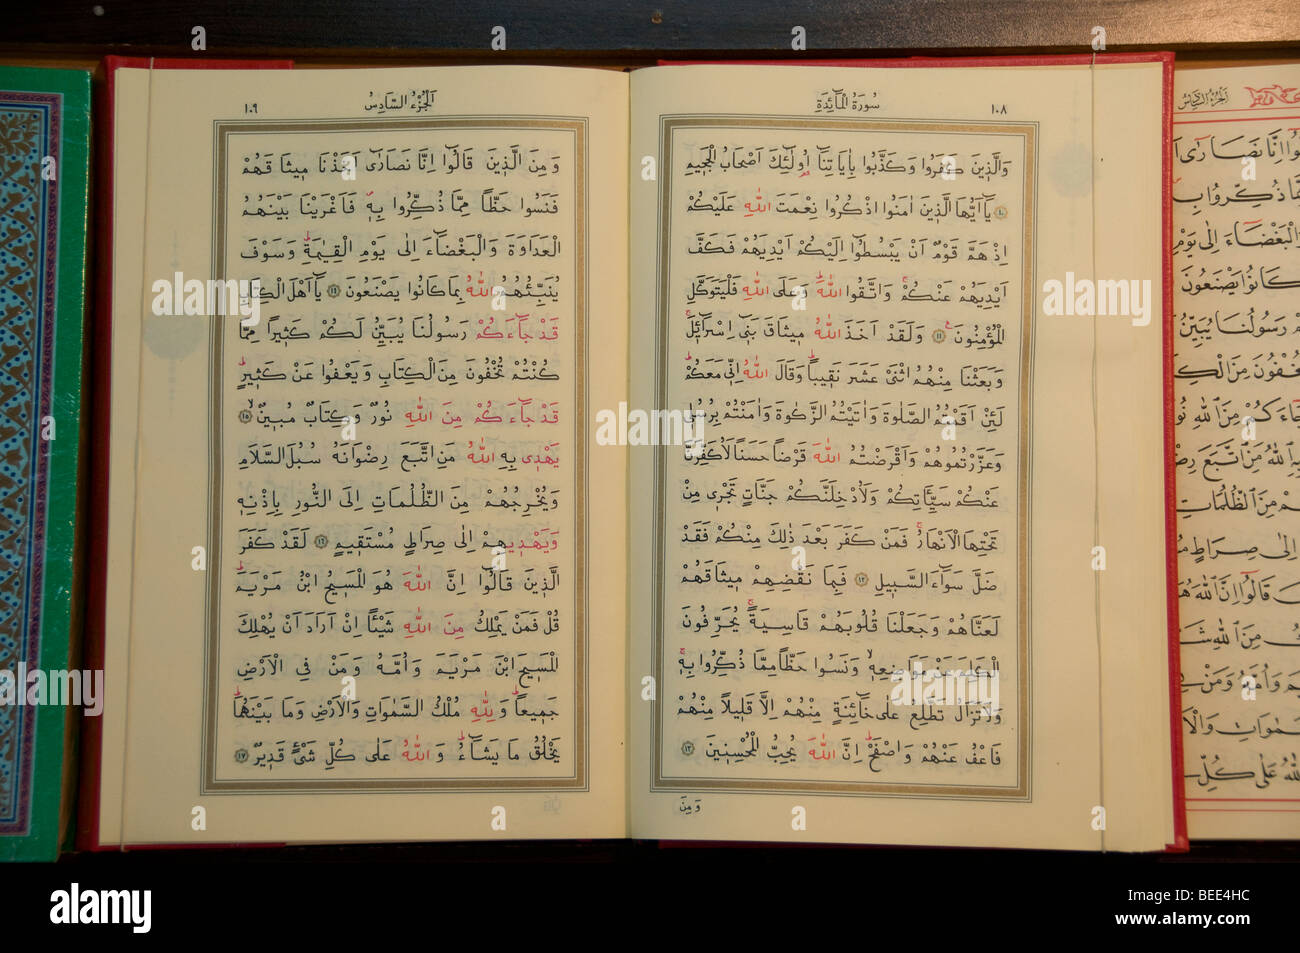 سُورَةُ الْمَٓائِدَةِ
١٠٨
وَالَّذ۪ينَ كَفَرُوا وَكَذَّبُوا بِاٰيَاتِنَٓا اُو۬لٰٓئِكَ اَصْحَابُ الْجَح۪يمِ
﴿١٠﴾ يَٓا اَيُّهَا الَّذ۪ينَ اٰمَنُوا اذْكُرُوا نِعْمَتَ اللّٰهِ عَلَيْكُمْ
اِذْ هَمَّ قَوْمٌ اَنْ يَبْسُطُٓوا اِلَيْكُمْ اَيْدِيَهُمْ فَكَفَّ
اَيْدِيَهُمْ عَنْكُمْۚ وَاتَّقُوا اللّٰهَۜ وَعَلَى اللّٰهِ فَلْيَتَوَكَّلِ
الْمُؤْمِنُونَ۟ ﴿١١﴾ وَلَقَدْ اَخَذَ اللّٰهُ م۪يثَاقَ بَن۪ٓي اِسْرَٓائ۪لَۚ
وَبَعَثْنَا مِنْهُمُ اثْنَيْ عَشَرَ نَق۪يبًاۜ وَقَالَ اللّٰهُ اِنّ۪ي مَعَكُمْۜ
لَئِنْ اَقَمْتُمُ الصَّلٰوةَ وَاٰتَيْتُمُ الزَّكٰوةَ وَاٰمَنْتُمْ بِرُسُل۪ي
وَعَزَّرْتُمُوهُمْ وَاَقْرَضْتُمُ اللّٰهَ قَرْضًا حَسَنًا لَاُكَفِّرَنَّ
عَنْكُمْ سَيِّـَٔاتِكُمْ وَلَاُدْخِلَنَّكُمْ جَنَّاتٍ تَجْر۪ي مِنْ
تَحْتِهَا الْاَنْهَارُۚ فَمَنْ كَفَرَ بَعْدَ ذٰلِكَ مِنْكُمْ فَقَدْ
ضَلَّ سَوَٓاءَ السَّب۪يلِ ﴿١٢﴾ فَبِمَا نَقْضِهِمْ م۪يثَاقَهُمْ
لَعَنَّاهُمْ وَجَعَلْنَا قُلُوبَهُمْ قَاسِيَةًۚ يُحَرِّفُونَ
الْكَلِمَ عَنْ مَوَاضِعِه۪ۙ وَنَسُوا حَظًّا مِمَّا ذُكِّرُوا بِه۪ۚ
وَلَا تَزَالُ تَطَّلِعُ عَلٰى خَٓائِنَةٍ مِنْهُمْ اِلَّا قَل۪يلًا مِنْهُمْ
فَاعْفُ عَنْهُمْ وَاصْفَحْۜ اِنَّ اللّٰهَ يُحِبُّ الْمُحْسِن۪ينَ ﴿١٣﴾
وَمِنَ
اَلْجُزْءُ السَّادِسُ
١٠٩
وَمِنَ الَّذ۪ينَ قَالُٓوا اِنَّا نَصَارٰٓى اَخَذْنَا م۪يثَاقَهُمْ
فَنَسُوا حَظًّا مِمَّا ذُكِّرُوا بِه۪ۖ فَاَغْرَيْنَا بَيْنَهُمُ
الْعَدَاوَةَ وَالْبَغْضَٓاءَ اِلٰى يَوْمِ الْقِيٰمَةِۜ وَسَوْفَ
يُنَبِّئُهُمُ اللّٰهُ بِمَا كَانُوا يَصْنَعُونَ ﴿١٤﴾ يَٓا اَهْلَ الْكِتَابِ
قَدْ جَٓاءَكُمْ رَسُولُنَا يُبَيِّنُ لَكُمْ كَث۪يرًا مِمَّا
كُنْتُمْ تُخْفُونَ مِنَ الْكِتَابِ وَيَعْفُوا عَنْ كَث۪يرٍۜ
قَدْ جَٓاءَكُمْ مِنَ اللّٰهِ نُورٌ وَكِتَابٌ مُب۪ينٌۙ ﴿١٥﴾
يَهْد۪ي بِهِ اللّٰهُ مَنِ اتَّبَعَ رِضْوَانَهُ سُبُلَ السَّلَامِ
وَيُخْرِجُهُمْ مِنَ الظُّلُمَاتِ اِلَى النُّورِ بِاِذْنِه۪
وَيَهْد۪يهِمْ اِلٰى صِرَاطٍ مُسْتَق۪يمٍ ﴿١٦﴾ لَقَدْ كَفَرَ
الَّذ۪ينَ قَالُٓوا اِنَّ اللّٰهَ هُوَ الْمَس۪يحُ ابْنُ مَرْيَمَۜ
قُلْ فَمَنْ يَمْلِكُ مِنَ اللّٰهِ شَيْـًٔا اِنْ اَرَادَ اَنْ يُهْلِكَ
الْمَس۪يحَ ابْنَ مَرْيَمَ وَاُمَّهُ وَمَنْ فِي الْاَرْضِ
جَم۪يعًاۜ وَلِلّٰهِ مُلْكُ السَّمٰوَاتِ وَالْاَرْضِ وَمَا بَيْنَهُمَاۜ
يَخْلُقُ مَا يَشَٓاءُۜ وَاللّٰهُ عَلٰى كُلِّ شَيْءٍ قَد۪يرٌ ﴿١٧﴾
alamy
Image ID: BEE4HC
www.alamy.com
BEE4HC